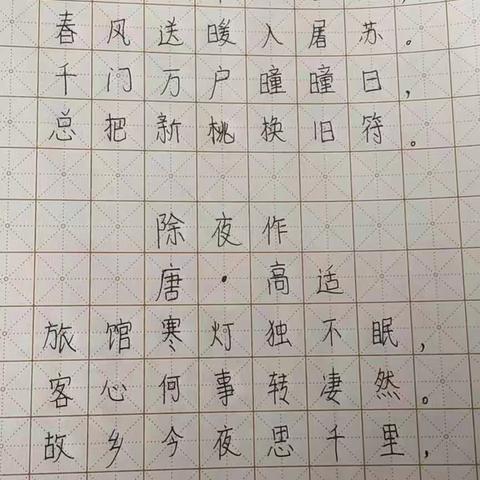 春风送暖入屠苏。
千门万户曈曈日，
总把新桃换旧符。
除夜作
唐·高适
旅馆寒灯独不眠，
客心何事转凄然。
故乡今夜思千里，